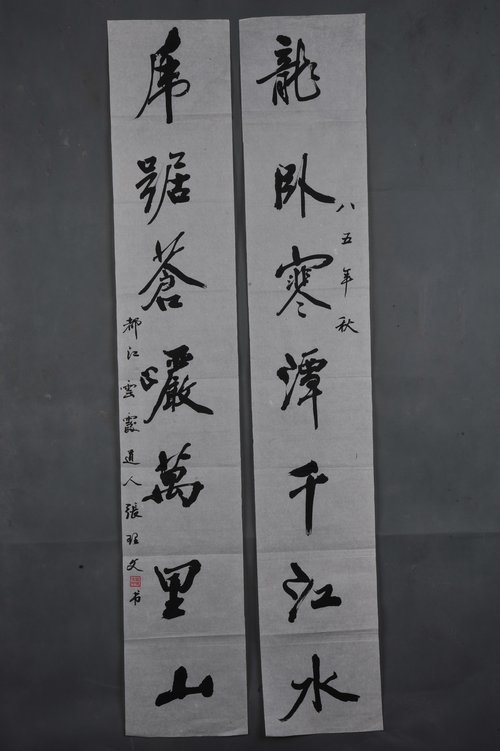 龍卧寒潭千江水
八五年秋
虎踞蒼巖萬里山
都江雲霞道人張玹文书